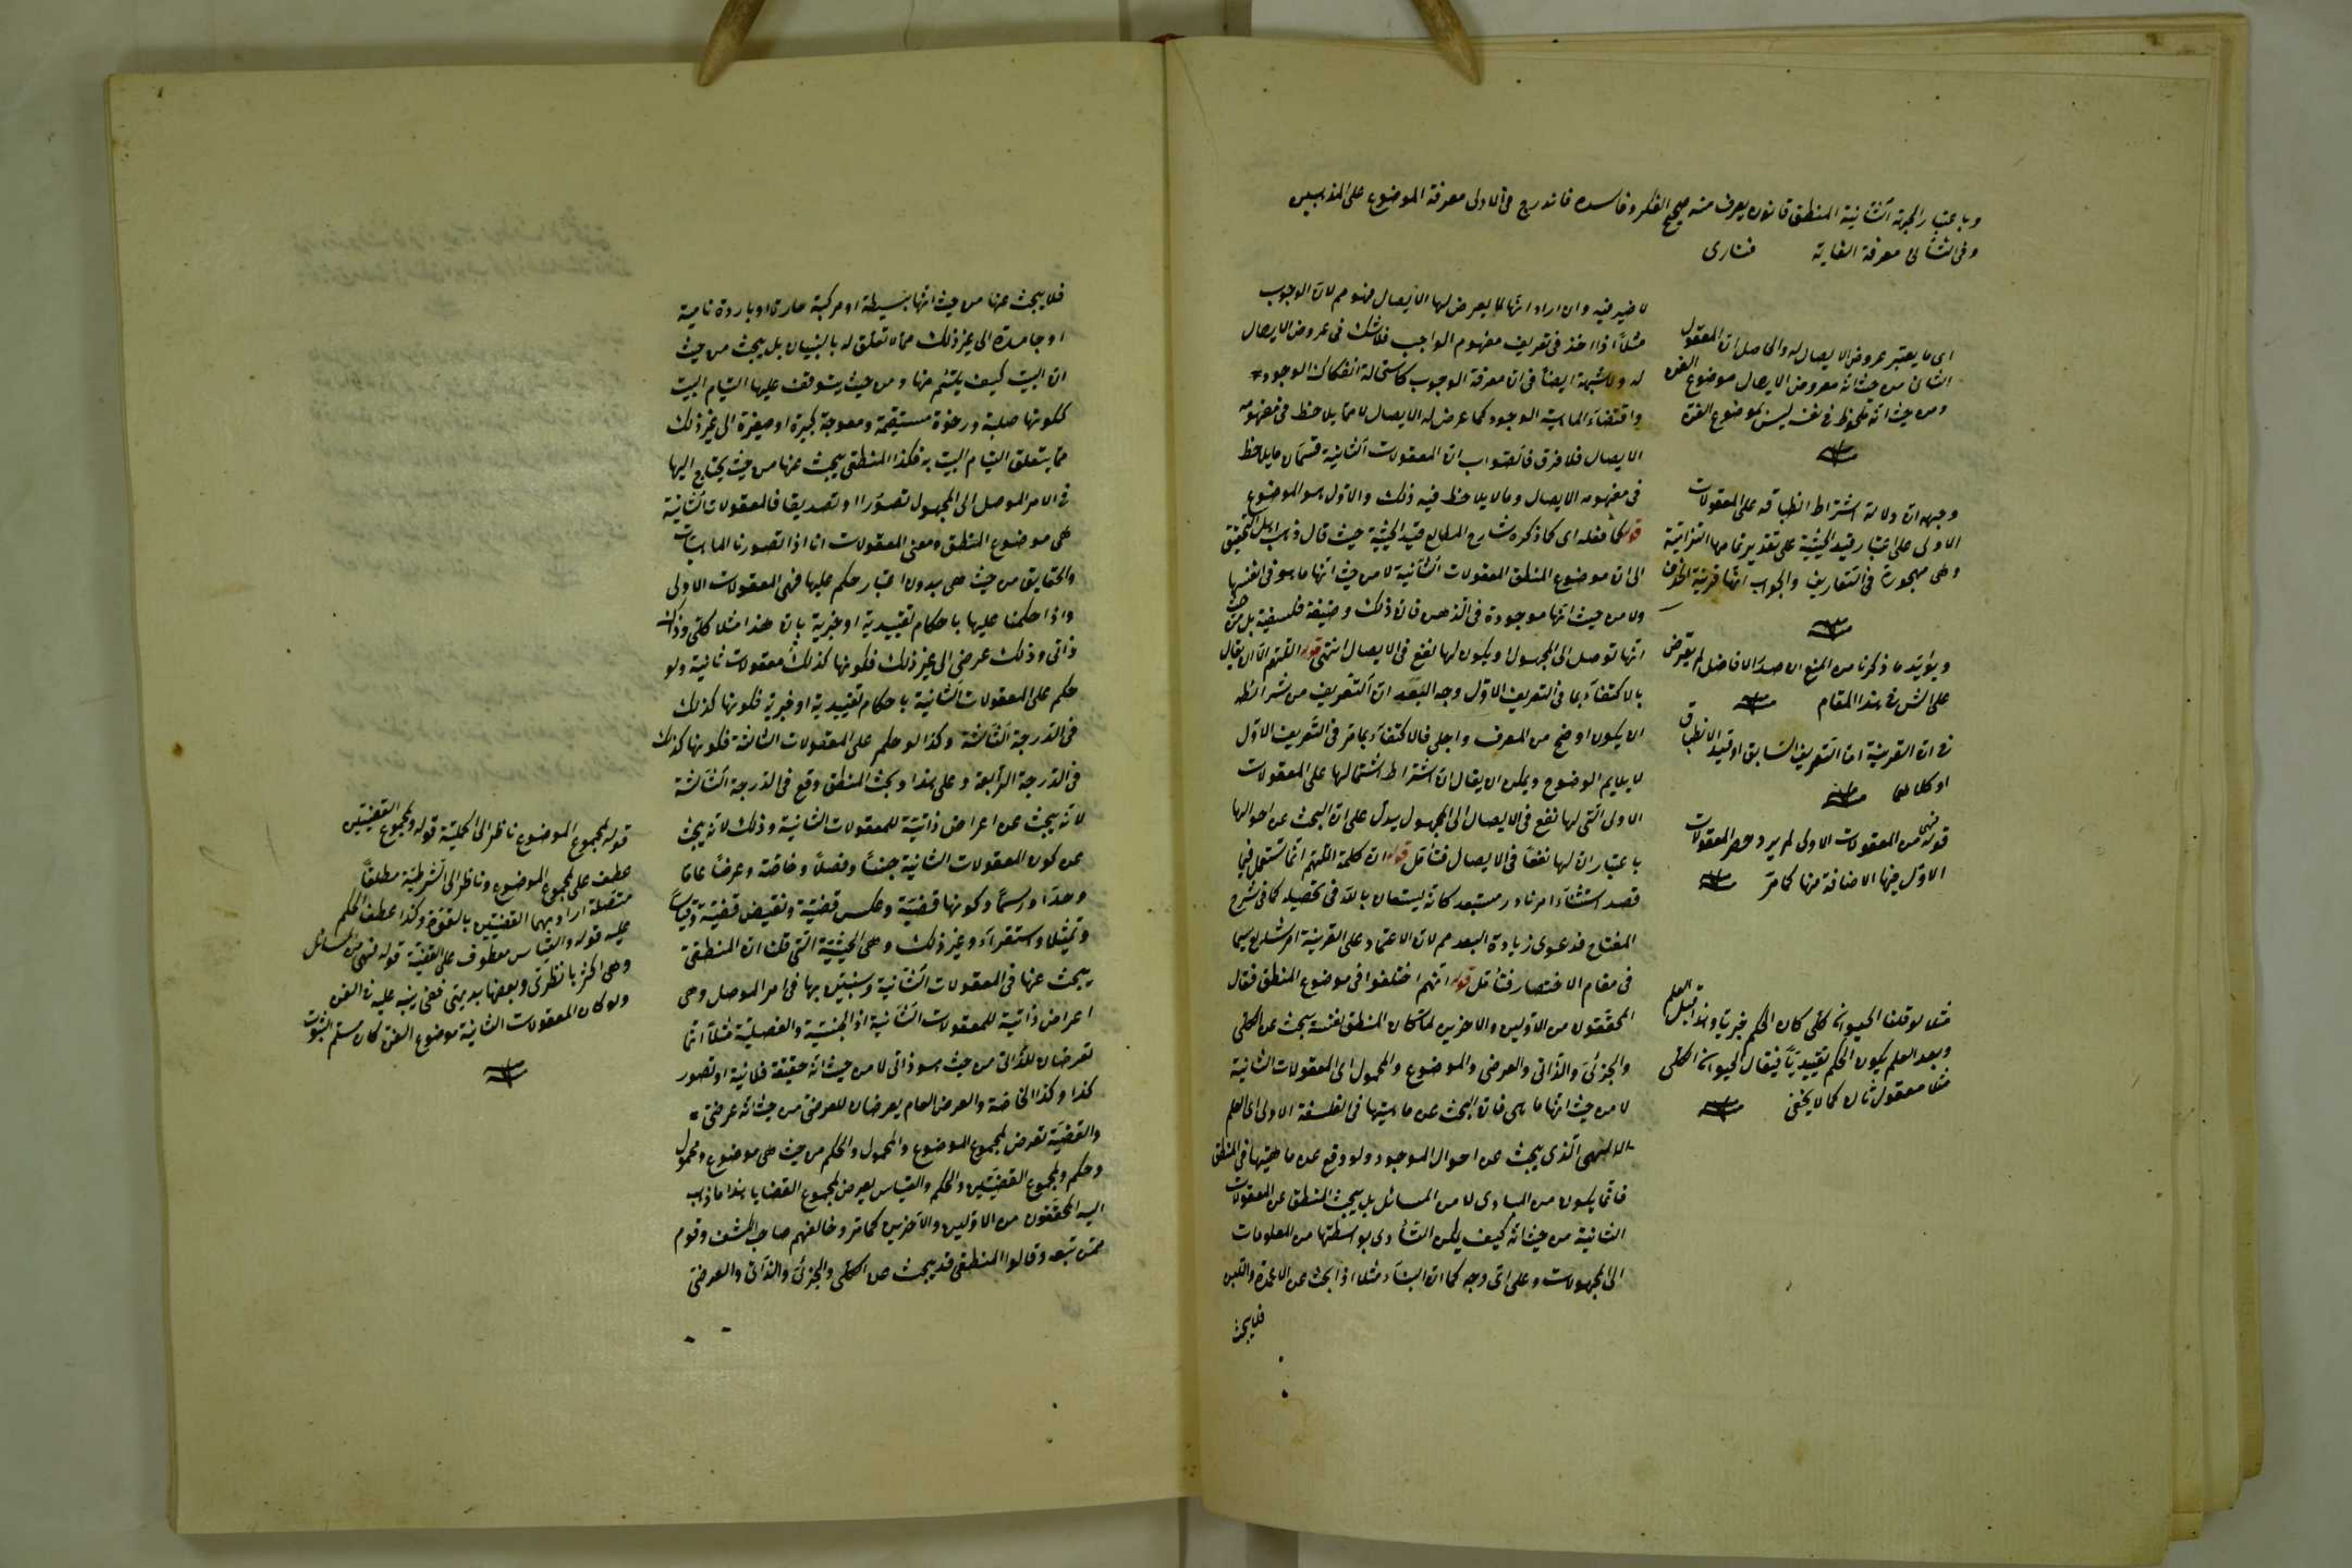 وباعتبار الجهة الثانية المنطق قانون يعرف منه صحيح الفكر وفاسده فاندرج في الاولى معرفة الموضوع على المذهبين
وفى الثانى معرفة الغاية فنارى
لا ضير فيه وان اراد انها لا يعرض لها الايصال فهو مم لان الوجوب
مثلا اذا اخذ فى تعريف مفهوم الواجب فلا شك فى عروض الايصال
له ولا شبهة ايضا فى ان معرفة الوجوب كاستحالة انفكاك الوجود
واقتضاء الماهية الوجود كما عرض له الايصال لا مما يلاحظ فى مفهومه
الايصال فلا فرق فالصواب ان المعقولات الثانية قسمان ما يلاحظ
فى مفهومه الايصال وما لا يلاحظ فيه ذلك والاول هو الموضوع
قوله كما فعله اى كما ذكره شارح المطالع قيد الحيثية حيث قال ذهب اهل التحقيق
الى ان موضوع المنطق المعقولات الثانية لا من حيث انها ما هو فى انفسها
ولا من حيث انها موجودة فى الذهن فان ذلك وظيفة فلسفية بل من حيث
انها توصل الى المجهول او يكون لها نفع فى الايصال انتهى قوله اللهم الا ان يقال
بالاكتفاء بما فى التعريف الاول وجه البعد ان التعريف من شرائطه
ان يكون اوضح من المعرف واجلى فالاكتفاء بما مر فى التعريف الاول
لا يلايم الوضوح ويمكن ان يقال ان اشتراط اشتمالها على المعقولات
الاولى التى لها نفع فى الايصال الى المجهول يدل على ان البحث عن احوالها
باعتبار ان لها نفعا فى الايصال فتأمل قوله ان كلمة اللهم انما تستعمل فيما
قصد استثناء امر نادر مستبعد كانه يستعان بالله فى تحصيله كما فى شرح
المفتاح فدعوى زيادة البعد مم لان الاعتماد على القرينة امر شايع سيما
فى مقام الاختصار فتأمل قوله انهم اختلفوا فى موضوع المنطق فقال
المحققون من الاولين والاخرين لما كان المنطق نفسه يبحث عن الكلى
والجزئى والذاتى والعرضى والموضوع والمحمول اى المعقولات الثانية
لا من حيث انها ما هى فان البحث عن ماهيتها فى الفلسفة الاولى اى العلم
الالهى الذى يبحث عن احوال الموجود ولو وقع عن ماهيتها فى المنطق
فانما يكون من المبادى لا من المسائل بل يبحث المنطق عن المعقولات
الثانية من حيث انه كيف يمكن التأدى بواسطتها من المعلومات
الى المجهولات وعلى اى وجه كما ان البناء مثلا اذا بحث عن الاعمدة واللبن
فلا يبحث
اى ما يعتبر عروض الايصال له والحاصل ان المعقول
الثانى من حيث انه معروض الايصال موضوع الفن
ومن حيث انه ملحوظ فى نفسه ليس بموضوع الفن
وجهه ان دلالة اشتراط انطباقه على المعقولات
الاولى على اعتبار قيد الحيثية على تقدير تمامها التزامية
وهى مهجورة فى التعاريف والجواب انها قرينة الحذف
ويؤيد ما ذكرنا من المنع ان صدر الافاضل لم يتعرض
على الش فى هذا المقام
فى ان القرينة اما التعريف السابق او قيد الانطباق
او كلاهما
قوله فهى من المعقولات الاولى لم يرد حصر المعقولات
الاول فيها الاضافة منها كما مر
مثلا لو قلنا الحيوان كلى كان الحكم خبريا وهذا قبل العلم
وبعد العلم يكون الحكم تقييديا فيقال الحيوان الكلى
مثلا معقول ثان كما لا يخفى
فلا يبحث عنها من حيث انها بسيطة او مركبة حارة او باردة نامية
او جامدة الى غير ذلك مما لا تعلق له بالبنيان بل يبحث من حيث
ان البيت كيف يلتئم منها ومن حيث يتوقف عليها التيام البيت
ككونها صلبة ورخوة مستقيمة ومعوجة كبيرة او صغيرة الى غير ذلك
مما يتعلق التيام البيت به فكذا المنطقى يبحث عنها من حيث يحتاج اليها
فى الامر الموصل الى المجهول تصورا او تصديقا فالمعقولات الثانية
هى موضوع المنطق ومعنى المعقولات انا اذا تصورنا الماهيات
والحقايق من حيث هى بدون اعتبار حكم عليها فهى المعقولات الاولى
واذا حكمنا عليها باحكام تقييدية او خبرية بان هذا مثلا كلى وذاك
ذاتى وذلك عرضى الى غير ذلك فكونها كذلك معقولات ثانية ولو
حكم على المعقولات الثانية باحكام تقييدية او خبرية فكونها كذلك
فى الدرجة الثالثة وكذا لو حكم على المعقولات الثالثة فكونها كذلك
فى الدرجة الرابعة وعلى هذا وبحث المنطق وقع فى الدرجة الثالثة
لانه يبحث عن اعراض ذاتية للمعقولات الثانية وذلك لانه يبحث
عن كون المعقولات الثانية جنسا وفصلا وخاصة وعرضا عاما
وحدا ورسما وكونها قضية وعكس قضية ونقيض قضية وقياسا
وتمثيلا واستقراء وغير ذلك وهى الحيثية التى قلنا ان المنطقى
يبحث عنها فى المعقولات الثانية وسنبين بها فى امر الموصل وهى
اعراض ذاتية للمعقولات الثانية اذ الجنسية والفصلية مثلا انما
تعرضان للذاتى من حيث هو ذاتى لا من حيث انه حقيقة فلانية او تصور
كذا وكذا الخاصة والعرض العام يعرضان للعرضى من حيث انه عرضى
والقضية تعرض لمجموع الموضوع والمحمول والحكم من حيث هى موضوع ومحمول
وحكم ولمجموع القضيتين والحكم والقياس يعرض لمجموع القضايا هذا ما ذهب
اليه المحققون من الاولين والاخرين كما مر وخالفهم صاحب الكشف وقوم
ممن تبعه وقالوا المنطقى قد يبحث عن الكلى والجزئى والذاتى والعرضى
قوله لمجموع الموضوع ناظر الى الحملية قوله ولمجموع القضيتين
عطف على لمجموع الموضوع وناظر الى الشرطية مطلقا
متصلة اراد بهما القضيتين بالقوة وكذا عطف الحكم
عليه قوله والقياس معطوف على القضية قوله فهى من المسائل
وهى اكثرها نظرى وبعضها بديهى خفى ينبه عليه فى الفن
ولو كان المعقولات الثانية موضوع الفن كان مسلم الثبوت